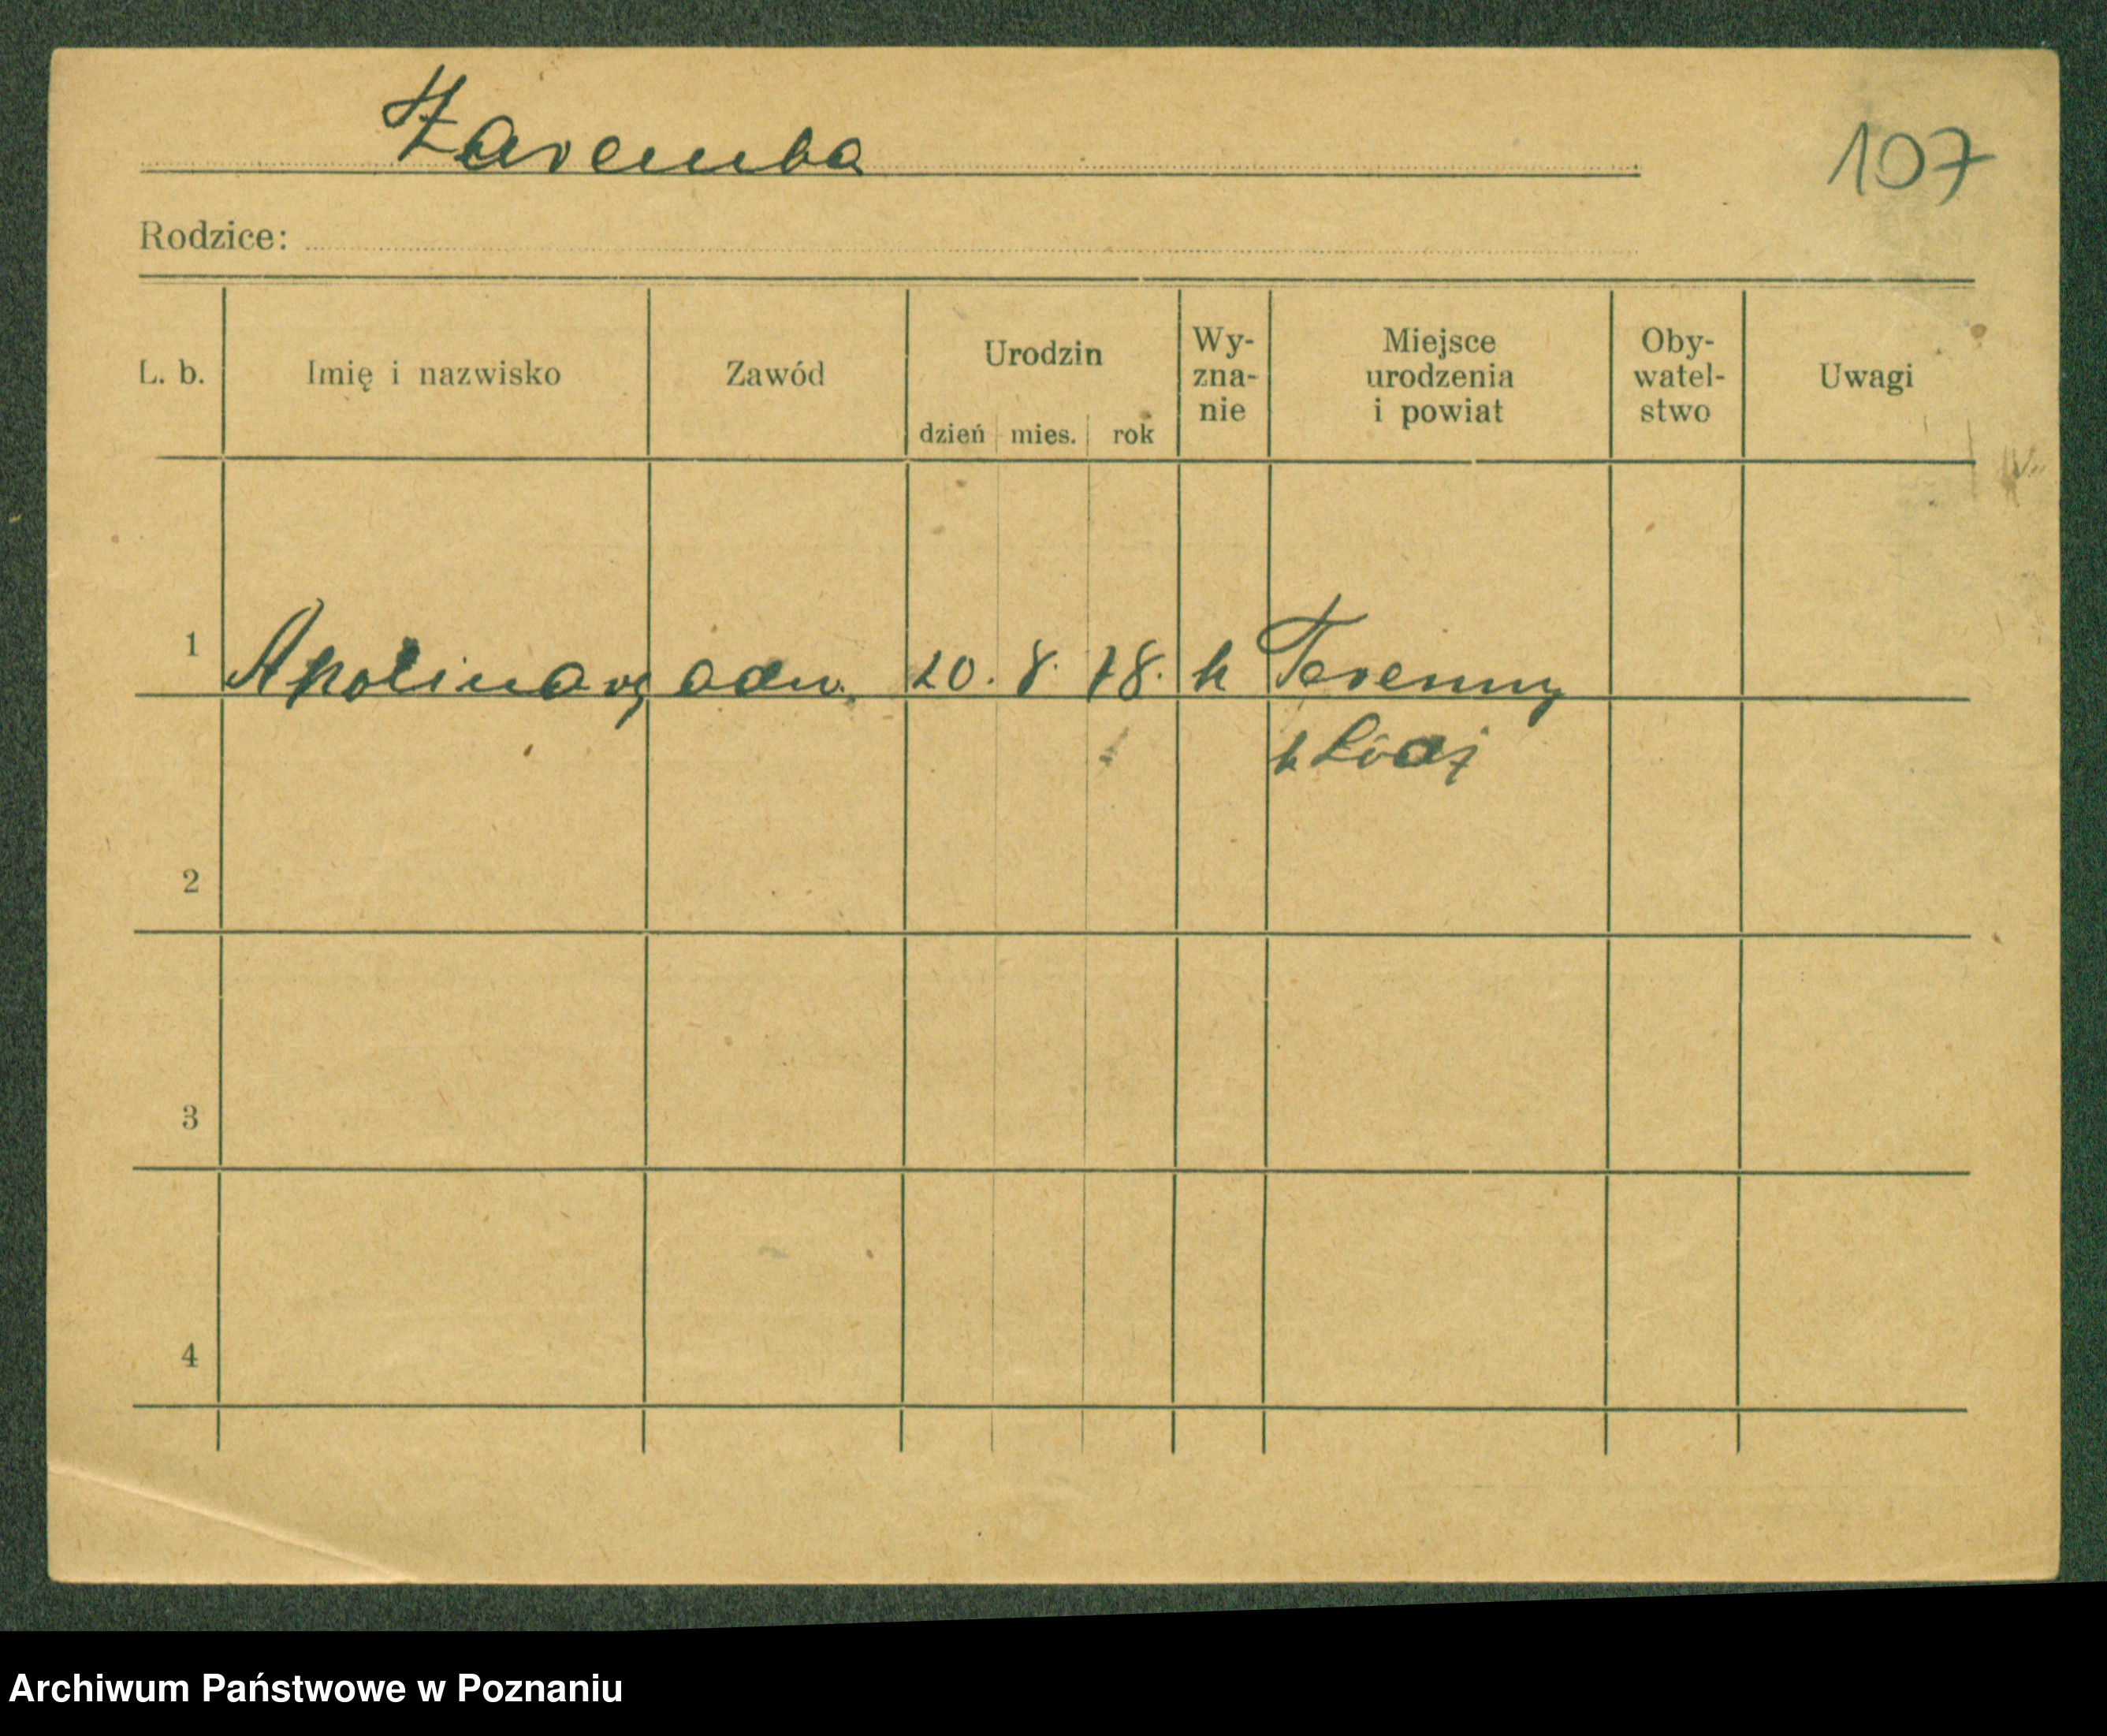 Zaremba
107
Rodzice:
L. b. Imię i nazwisko Zawód Urodzin dzień mies. rok Wy-zna-nie Miejsce urodzenia i powiat Oby-watel-stwo Uwagi
1 Apolinary adw. 20. 8. 78. k
Łódź
2
3
4
Archiwum Państwowe w Poznaniu